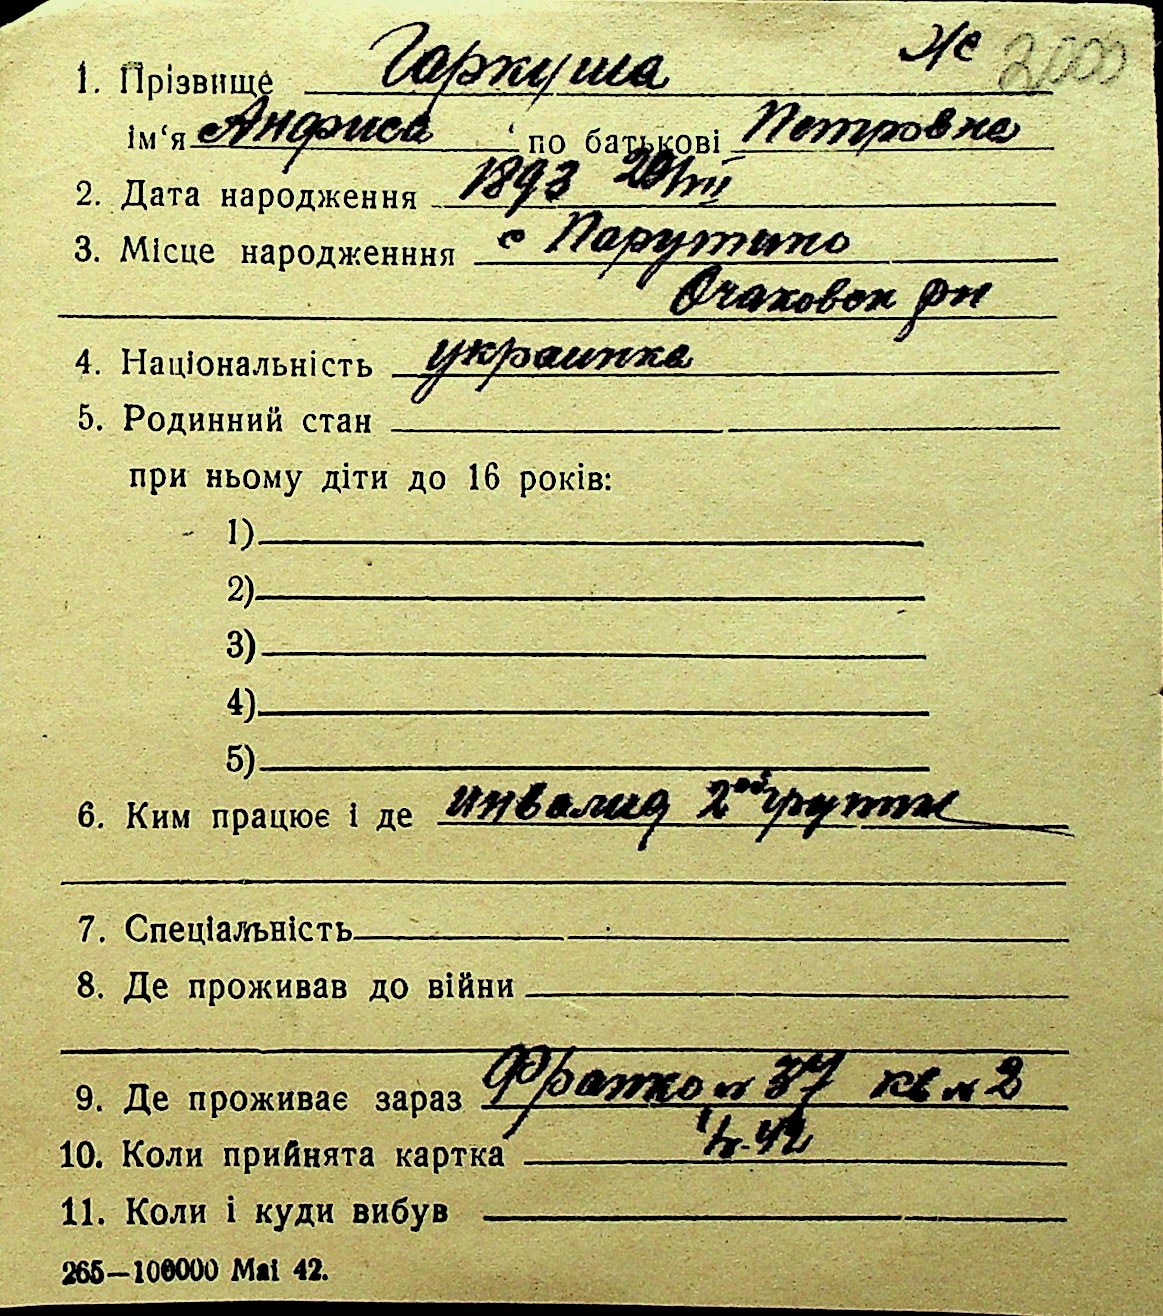 Же 2000
1. Прізвище Гаркуша
ім‘я Анфиса по батькові Петровна
2. Дата народження 1893 29/VIII
3. Місце народженння с Парутино
Очаковск рн
4. Національність украинка
5. Родинний стан
при ньому діти до 16 років:
1)
2)
3)
4)
5)
6. Ким працює і де инвалид 2ой группы
7. Спеціальність
8. Де проживав до війни
9. Де проживає зараз Франко № 37 кв № 2
10. Коли прийнята картка
11. Коли і куди вибув
265—100000 Mai 42.